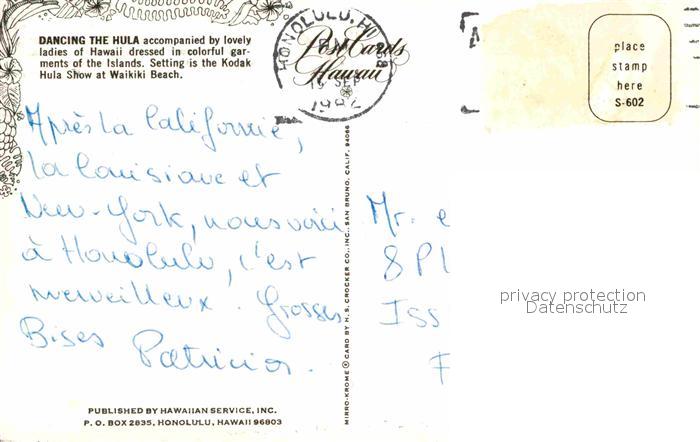 DANCING THE HULA accompanied by lovely
ladies of Hawaii dressed in colorful gar-
ments of the Islands. Setting is the Kodak
Hula Show at Waikiki Beach.
HONOLULU, HI
SEP
Post Cards
Hawaii
place
stamp
here
S-602
Après la Californie,
la Louisiane et
New-York, nous voici
à Honolulu, c'est
merveilleux. Grosses
Bises
Patricia.
MIRRO-KROME ® CARD BY H. S. CROCKER CO., INC., SAN BRUNO, CALIF. 94066
Mr. e
8 Pl
Iss
F
privacy protection
Datenschutz
PUBLISHED BY HAWAIIAN SERVICE, INC.
P. O. BOX 2835, HONOLULU, HAWAII 96803